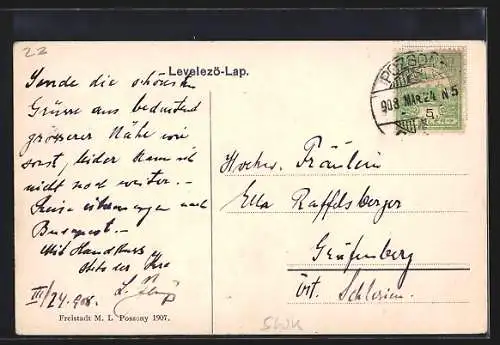 22
Levelező-Lap.
POZSONY
908 MÁR. 24 N 5
5
Sende die schönsten
Grüsse aus bedeutend
grösserer Nähe wie
sonst, leider kann ich
nicht noch weiter. –
Reise übermorgen nach
Budapest. –
Mit Handkuss
stets der Ihre
III/24. 908.
Hochw. Fräulein
Ella Raffelsberger
Gräfenberg
Öst. Schlesien.
Freistadt M. L Possony 1907.